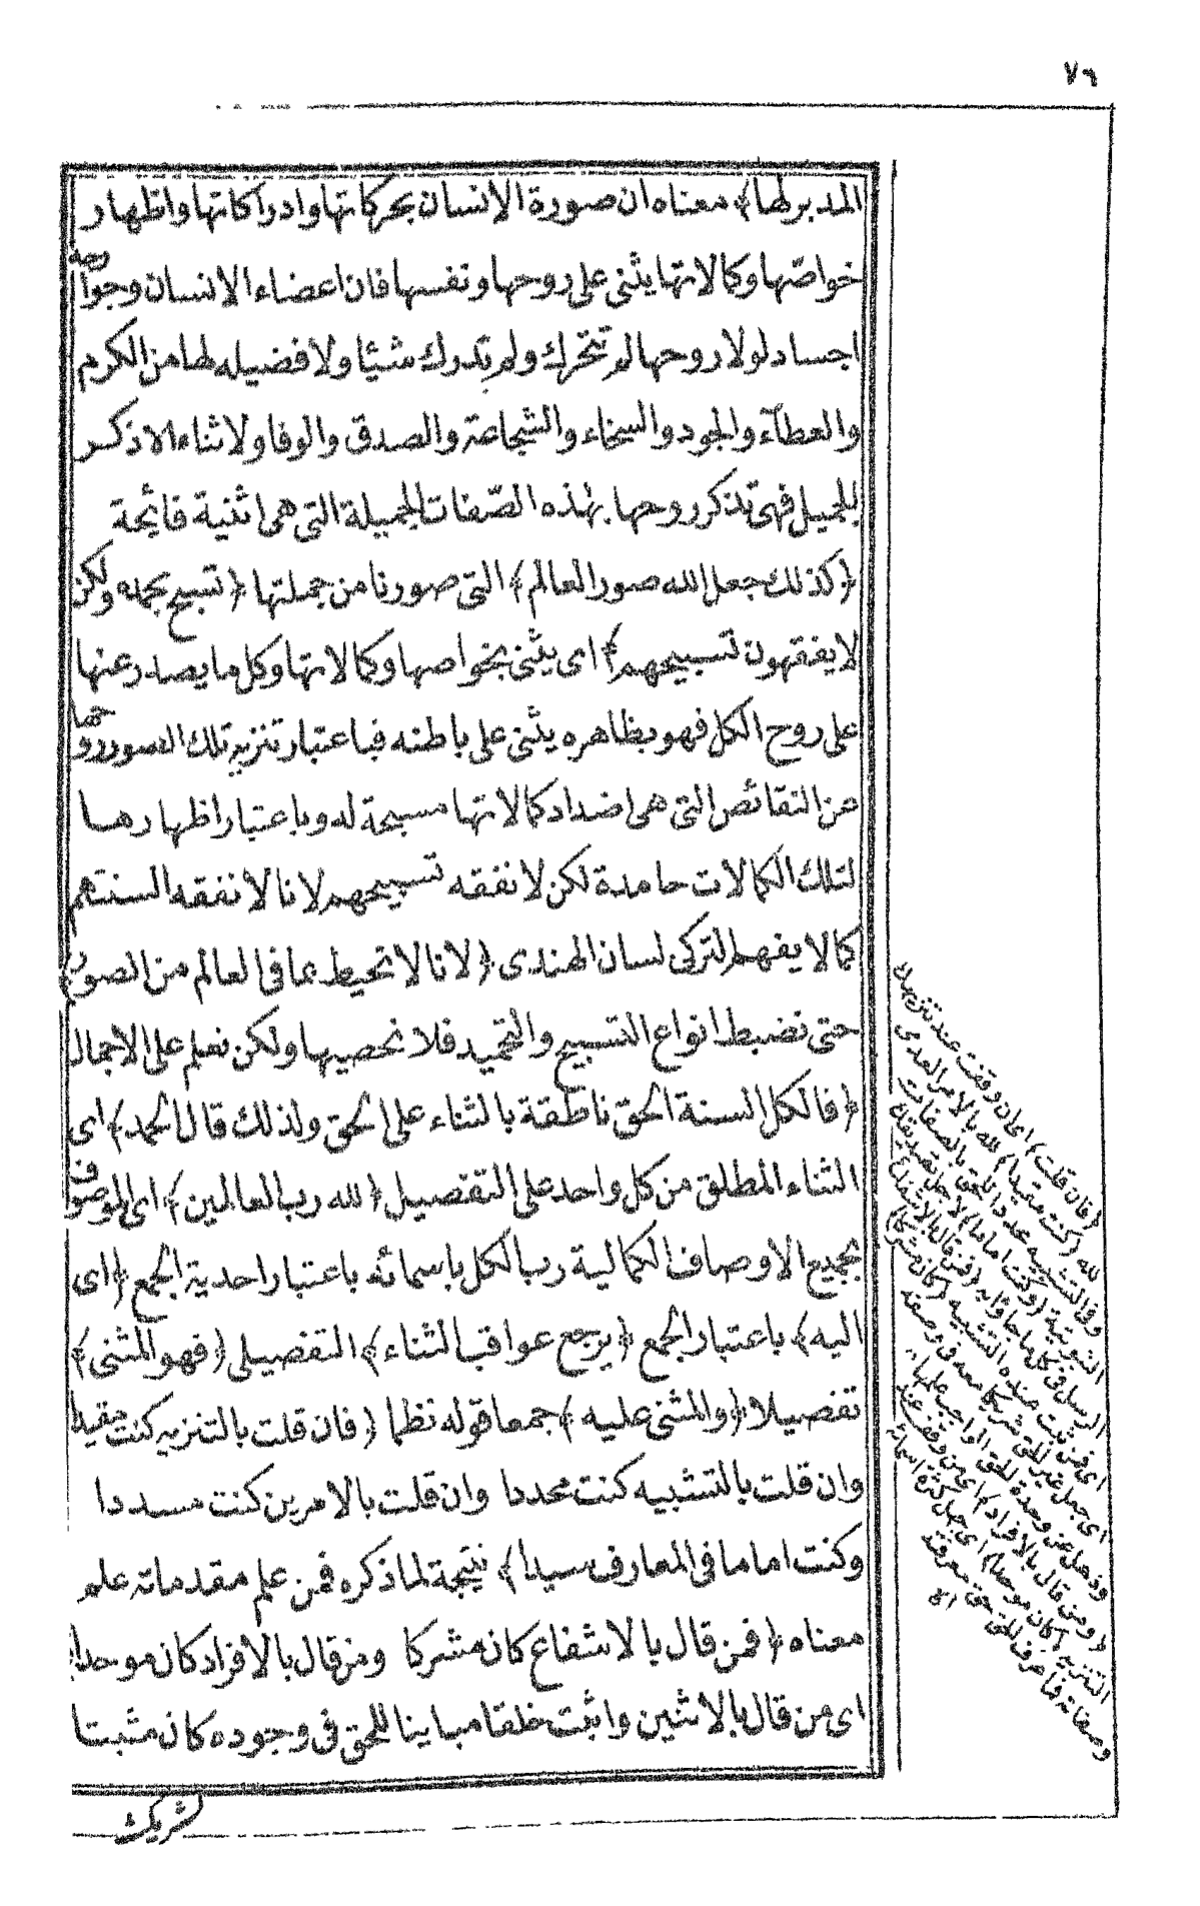 ٧٦
المدبر لها﴾ معناه ان صورة الانسان بحركاتها وادراكاتها واظهار
خواصّها وكمالاتها يثنى على روحها ونفسها فان اعضاء الانسان وجوارحه
اجساد لولا روحها لم تتحرك ولم تدرك شيئا ولا فضيله لها من الكرم
والعطآء والجود والسخاء والشجاعة والصدق والوفا ولا ثناء الا ذكر
للجميل فهى تذكر روحها بهذه الصّفات الجميلة التى هى اثنية فائحة
﴿كذلك جعل الله صور العالم﴾ التى صورنا من جملتها ﴿تسبح بحمده ولكن
لا يفقهون تسبيحهم﴾ اى يثنى بخواصها وكمالاتها وكل ما يصدر عنها
على روح الكل فهو بظاهره يثنى على باطنه فباعتبار تنزيه تلك الصور روحها
عن النقائص التى هى اضداد كمالاتها مسبحة له وباعتبار اظهارها
لتلك الكمالات حامدة لكن لا نفقه تسبيحهم لانا لا نفقه السنتهم
كما لا يفهم التركى لسان الهندى ﴿لانا لا نحيط بما فى العالم من الصور﴾
حتى نضبط انواع التسبيح والتحميد فلا نحصيها ولكن نعلم على الاجمال
﴿فالكل السنة الحق ناطقة بالثناء على الحق ولذلك قال الحمد﴾ اى
الثناء المطلق من كل واحد على التفصيل ﴿لله رب العالمين﴾ اى الموصوف
بجميع الاوصاف الكمالية رب الكل باسمائه باعتبار احدية الجمع ﴿اى
اليه﴾ باعتبار الجمع ﴿يرجع عواقب الثناء﴾ التفصيلى ﴿فهو المثنى﴾
تفصيلا ﴿والمثنى عليه﴾ جمعا قوله نظما ﴿فان قلت بالتنزيه كنت مقيدا
وان قلت بالتشبيه كنت محددا وان قلت بالامرين كنت مسددا
وكنت اماما فى المعارف سيدا﴾ نتيجة لما ذكره فمن علم مقدماته علم
معناه ﴿فمن قال بالاشفاع كان مشركا ومن قال بالافراد كان موحدا﴾
اى من قال بالاثنين واثبت خلقا مباينا للحق فى وجوده كان مثبتا
لشريك
﴿فان قلت﴾ اى ان وقفت عند تنزيهك
لله ﴿كنت مقيدا﴾ لله بالامر العدمى
وفى التشبيه محددا للحق بالصفات
الثبوتية ﴿وكنت اماما﴾ لاجل تصديقك
الرسل فى كل ما جاؤا به ﴿فمن قال بالاشفاع﴾
اى فمن ثبت عنده التشبيه ﴿كان مشركا﴾
اى جعل غير الحق شريكا معه فى وصفه
وذهل عن وحدة الحق الواجب علمها
﴿ومن قال بالافراد﴾ اى من وقف عند
التنزيه ﴿كان موحدا﴾ اى جهل كثرة اسمائه
وصفاته فما عرف الحق حق معرفته